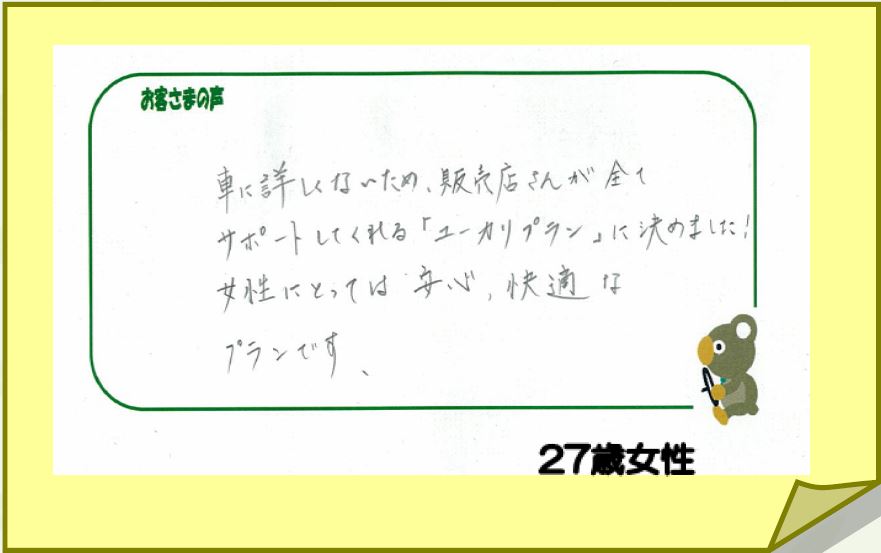 お客さまの声
車に詳しくないため、販売店さんが全て
サポートしてくれる「ユーカリプラン」に決めました!
女性にとっては安心,快適な
プランです、
27歳女性